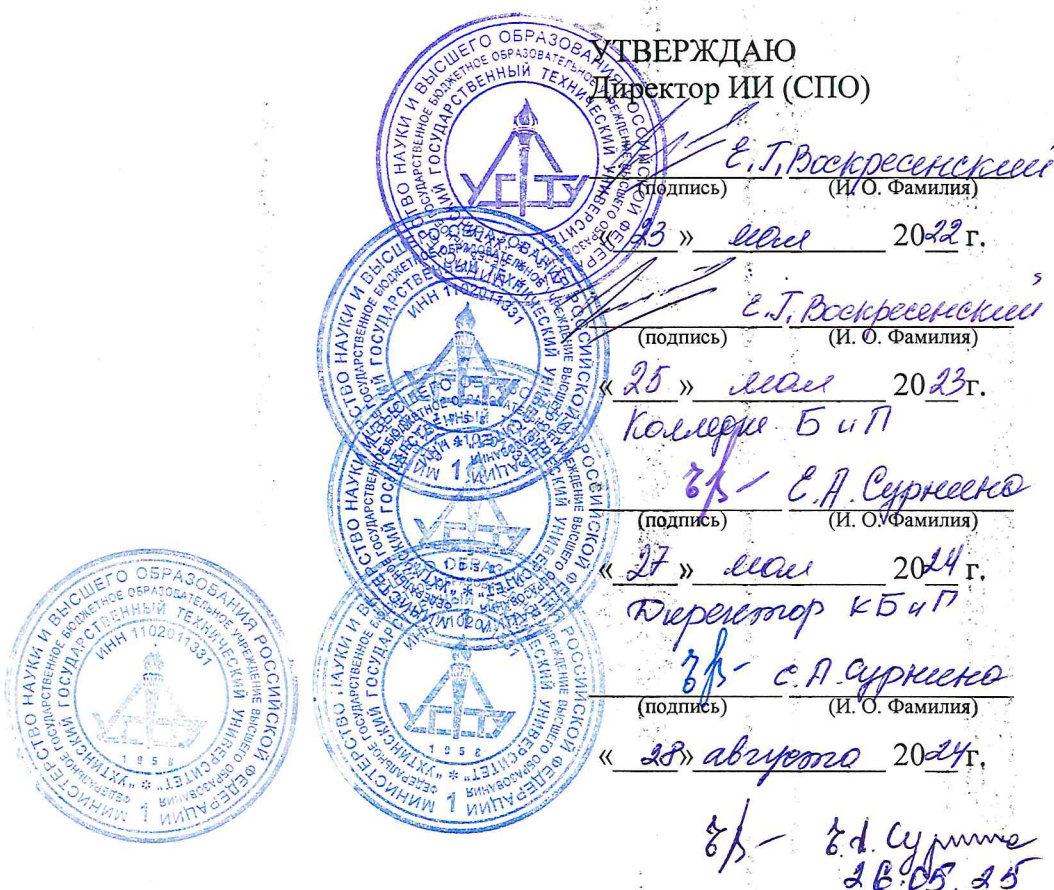 УТВЕРЖДАЮ
Директор ИИ (СПО)
Е. Г. Воскресенский
(подпись) (И. О. Фамилия)
« 23 » мая 2022 г.
Е. Г. Воскресенский
(подпись) (И. О. Фамилия)
« 25 » мая 2023г.
Колледж БиП
Е. А. Сурнина
(подпись) (И. О. Фамилия)
« 27 » мая 2024 г.
Директор КБиП
Е. А. Сурнина
(подпись) (И. О. Фамилия)
« 28» августа 2024г.
Е. А. Сурнина
26.05.25
МИНИСТЕРСТВО НАУКИ И ВЫСШЕГО ОБРАЗОВАНИЯ РОССИЙСКОЙ ФЕДЕРАЦИИ
ФЕДЕРАЛЬНОЕ ГОСУДАРСТВЕННОЕ БЮДЖЕТНОЕ ОБРАЗОВАТЕЛЬНОЕ УЧРЕЖДЕНИЕ ВЫСШЕГО ОБРАЗОВАНИЯ
"УХТИНСКИЙ ГОСУДАРСТВЕННЫЙ ТЕХНИЧЕСКИЙ УНИВЕРСИТЕТ"
ИНН 1102011331
УГТУ
1958
1